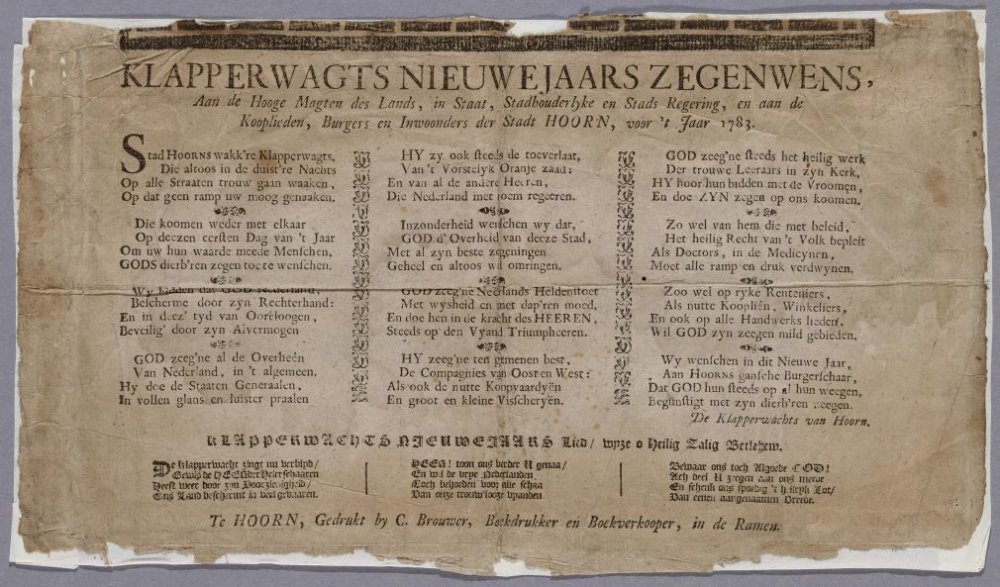 KLAPPERWAGTS NIEUWEJAARS ZEGENWENS,
Aan de Hooge Magten des Lands, in Staat, Stadhouderlyke en Stads Regering, en aan de
Kooplieden, Burgers en Inwoonders der Stadt HOORN, voor 't Jaar 1783.
Stad HOORNS wakk're Klapperwagts,
Die altoos in de duist're Nachts
Op alle Straaten trouw gaan waaken,
Op dat geen ramp uw moog genaaken.
Die koomen weder met elkaar
Op deezen eersten Dag van 't Jaar
Om uw hun waarde meede Menschen,
GODS dierb'ren zegen toe te wenschen.
Wy bidden dat GOD Nederland,
Bescherme door zyn Rechterhand:
En in deez' tyd van Oorloogen,
Beveilig' door zyn Alvermogen
GOD zeeg'ne al de Overheên
Van Nederland, in 't algemeen.
Hy doe de Staaten Generaalen,
In vollen glans en luister praalen
HY zy ook steeds de toeverlaat,
Van 't Vorstelyk Oranje zaad:
En van al de andere Heeren,
Die Nederland met roem regeeren.
Inzonderheid wenschen wy dat,
GOD d' Overheid van deeze Stad,
Met al zyn beste zegeningen
Geheel en altoos wil omringen.
GOOD zeeg'ne Neerlands Heldenstoet
Met wysheid en met dap'ren moed,
En doe hen in de kracht des HEEREN,
Steeds op den Vyand Triumpheeren.
HY zeeg'ne ten gemenen best,
De Compagnies van Oost en West:
Als ook de nutte Koopvaardyën
En groot en kleine Visscheryën.
GOD zeeg'ne steeds het heilig werk
Der trouwe Leeraars in zyn Kerk,
HY hoor hun bidden met de Vroomen,
En doe ZYN zegen op ons koomen.
Zo wel van hem die met beleid,
Het heilig Recht van 't Volk bepleit
Als Doctors, in de Medicynen,
Moet alle ramp en druk verdwynen.
Zoo wel op ryke Renteniers,
Als nutte Kooplièn, Winkeliers,
En ook op alle Handwerks lieden,
Wil GOD zyn zeegen mild gebieden.
Wy wenschen in dit Nieuwe Jaar,
Aan HOORNS gansche Burgerschaar,
Dat GOD hun steeds op al hun weegen,
Begunstigt met zyn dierb'ren zeegen.
De Klapperwachts van Hoorn.
KLAPPERWACHTS NIEUWEJAARS Lied/ wyze o Heilig Zalig Bethlehem.
De Klapperwacht zingt nu verblyd/
Dewyl de HEER der Heerschaaren
Heeft weer door zyn Voorzienigheid/
Ons Land beschermt in veel gevaaren.
HEER! toon ons verder U genaa/
En wil de vrye Nederlanden
Toch behoeden voor alle schaa
Van onze trouwlooze vyanden
Bewaar ons toch Algoede GOD!
Ach deel U zeegen aan ons meede
En schenk ons spoedig 't heilryk Lot/
Van eenen aangenaamen Vreede.
Te HOORN, Gedrukt by C. Brouwer, Boekdrukker en Boekverkooper, in de Ramen.